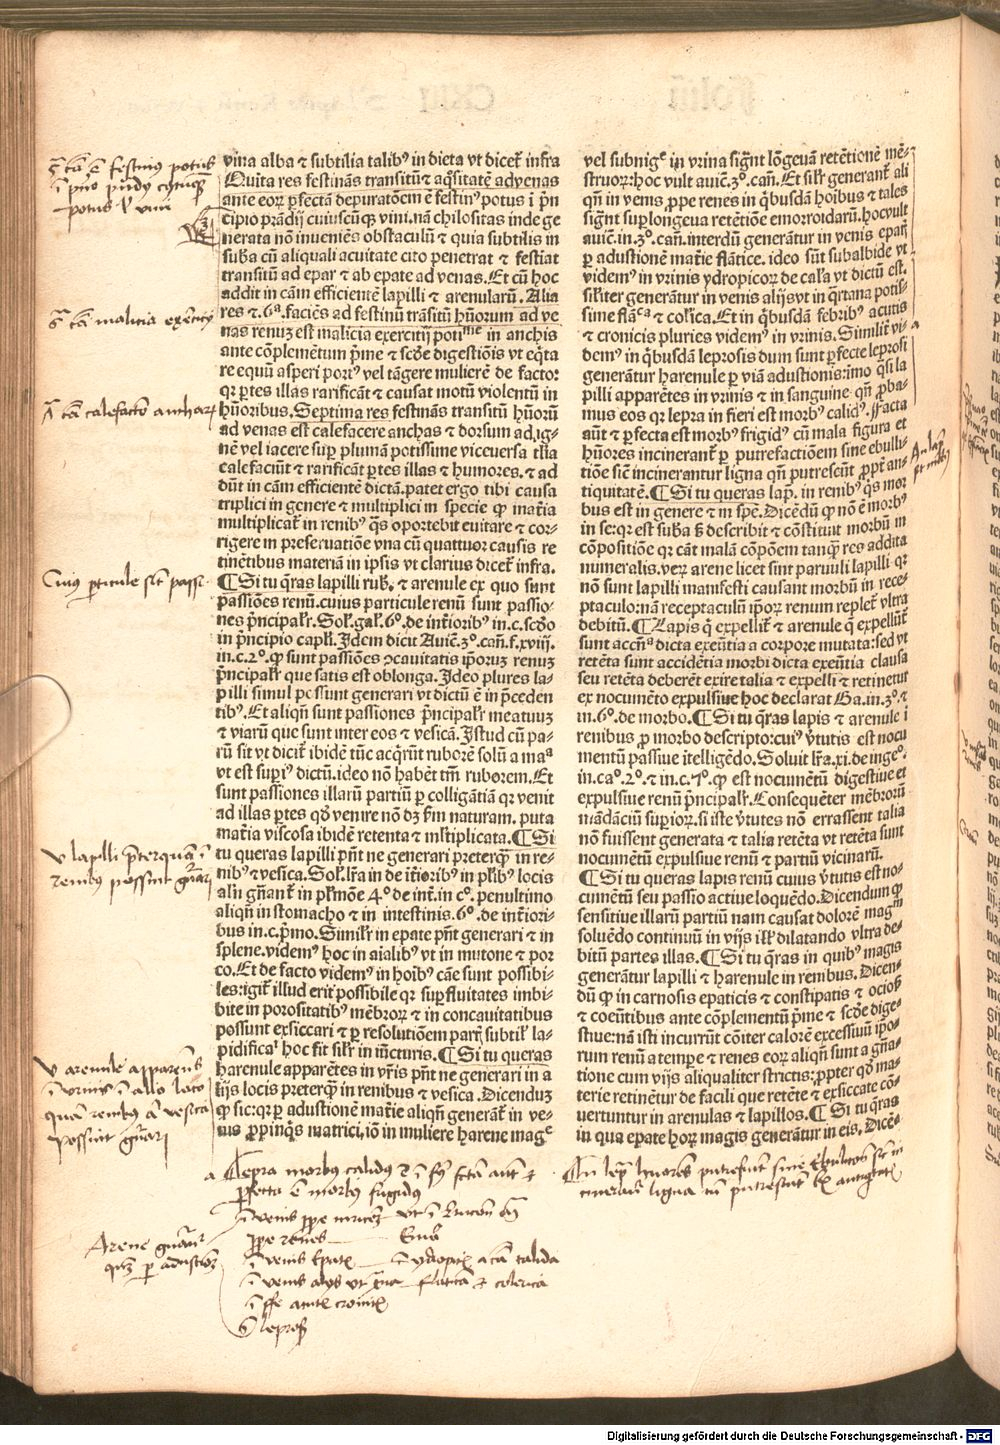 vina alba ⁊ subtilia talibꝰ in dieta vt dicet᷑ infra
Quita res festinãs transitũ ⁊ aq̃sitatẽ ad venas
ante eoꝝ ꝑfectã depuratõem ẽ festinꝰ potus ĩ pñ
cipio prãdij cuiuscũqꝫ vini. nã chilositas inde ge
nerata nõ inueniẽs obstaculũ ⁊ quia subtilis in
suba cũ aliquali acuitate cito penetrat ⁊ festiat
transitũ ad epar ⁊ ab epate ad venas. Et cũ hoc
addit in cãm efficientẽ lapilli ⁊ arenularũ. Alia
res ⁊.6ª. faciẽs ad festinũ trãsitũ hũorum ad ve
nas renuꝫ est malicia exercitij poti^me in anchis
ante cõplemẽtum p̃me ⁊ scðe digestiõis vt eq̃ta
re equũ asperi portꝰ vel tãgere mulierẽ de facto:
qꝛ ꝑtes illas rarificãt ⁊ causat motũ violentũ in
hũoribus. Septima res festinãs transitũ hũorũ
ad venas est calefacere anchas ⁊ dorsum ad ig-
nẽ vel iacere suꝑ plumã potissime viceuersa tl̃ia
calefaciũt ⁊ rarificãt ꝑtes illas ⁊ humores. ⁊ ad
dũt in cãm efficientẽ dictã. patet ergo tibi causa
triplici in genere ⁊ multiplici in specie ꝙ mat̃ia
multiplicat᷑ in renibꝰ q̃s oportebit euitare ⁊ cor-
rigere in preseruatiõe vna cũ quattuor causis re
tinẽtibus materiã in ipsis vt clarius dicet᷑ infra.
¶Si tu q̃ras lapilli rub. ⁊ arenule ex quo sunt
passiões renũ. cuius particule renũ sunt passio-
nes p̃ncipalr̃. Sol. gal. 6º. de int̃ioribꝰ in .c. scðo
in p̃ncipio capl̃i. Idem dicit Auic̃. 3º. cañ. f. xviij.
in .c. 2º. ꝙ sunt passiões ↄcauitatis ip̃oruꝫ renuꝫ
p̃ncipalr̃ que satis est oblonga. Ideo plures la-
pilli simul possunt generari vt dictũ ẽ in p̃ceden
tibꝰ. Et aliqñ sunt passiones p̃ncipalr̃ meatuuꝫ
⁊ viarũ que sunt inter eos ⁊ vesicã. Istud cũ pa-
rũ sit vt dicit᷑ ibidẽ tũc acq̃rũt ruborẽ solũ a maª
vt est suꝑiꝰ dictũ. ideo nõ habẽt tm̃ ruborem. Et
sunt passiones illarũ partiũ ꝑ colligãtiã qꝛ venit
ad illas ꝑtes qð venire nõ dꝫ ẜm naturam. puta
mat̃ia viscosa ibidẽ retenta ⁊ m̃ltiplicata. ¶Si
tu queras lapilli pñt ne generari preterq̃ꝫ in re-
nibꝰ ⁊ vesica. Sol. lr̃a in de it̃ioribꝰ in pl̃ibꝰ locis
alij gñant᷑ in pl̃mõe 4º de int̃. in cº. penultimo
aliqñ in stomacho ⁊ in intestinis. 6º. de int̃iori-
bus in .c. p̃mo. Similr̃ in epate pñt generari ⁊ in
splene. videmꝰ hoc in aialibꝰ vt in mutone ⁊ por
co. Et de facto videmꝰ in hoĩbꝰ cãe sunt possibi-
les: igit᷑ illud erit possibile qꝛ suꝑfluitates imbi-
bite in porositatibꝰ mẽbroꝝ ⁊ in concauitatibus
possunt exsiccari ⁊ ꝑ resolutiõem partꝭ subtil̃ la-
pidificar̃ hoc fit silr̃ in iũcturis. ¶Si tu queras
harenule apparẽtes in vr̃is pñt ne generari in a
lijs locis preterqꝫ in renibus ⁊ vesica. Dicenduꝫ
ꝙ sic: qꝛ ꝑ adustionẽ mat̃ie aliqñ generãt᷑ in ve-
nis ꝓpinq̃s matrici. iõ in muliere harene magᵉ
vel subnigᵉ in vrina sig̃nt lõgeuã retẽtionẽ mẽ-
struoꝝ: hoc vult auic̃. 3º. cañ. Et silr̃ generant᷑ ali
qñ in venis ꝓpe renes in q̃busdã hoĩbus ⁊ tales
sig̃nt suꝑlongeua retẽtiõe emorroidarũ. hoc vult
auic̃. in .3º. cañ. interdũ generãtur in venis epatꝭ
ꝑ adustionẽ mat̃ie flãtice. ideo sũt subalbide vt
videmꝰ in vrinis ydropicoꝝ de cal̃a vt dictũ est.
sil̃iter generãtur in venis alijs vt in q̃rtana potis-
sime flãᶜª ⁊ col̃ica. Et in q̃busdã febribꝰ acutis
⁊ cronicis pluries videmꝰ in vrinis. Similit᷑ vi-
demꝰ in q̃busdã leprosis dum sunt ꝑfecte leprosi
generãtur harenule ꝑ viã adustionis: imo q̃si la
pilli apparẽtes in vrinis ⁊ in sanguine qñ ꝓba-
mus eos qꝛ lepra in fieri est morbꝰ calidꝰ. Facta
aũt ⁊ ꝑfecta est morbꝰ frigidꝰ cũ mala figura et
hũores incinerant᷑ ꝑ putrefactiõem sine ebulli-
tiõe sic̃ incinerantur ligna qñ putrescũt ꝓpt᷑ an-
tiquitatẽ. ¶Si tu queras lap. in renibꝰ q̃s mor
bus est in genere ⁊ in spẽ. Dicẽdũ ꝙ nõ ẽ morbꝰ
in se: qꝛ est suba ẜ describit᷑ ⁊ cõstituit᷑ morbũ in
cõpositiõe qꝛ cãt malã cõpõem tanqꝫ res addita
numeralis. veꝝ arene licet sint paruuli lapilli qꝛ
nõ sunt lapilli manifesti causant morbũ in rece-
ptaculo: nã receptaculũ ip̃oꝝ renum replet᷑ vltra
debitũ. ¶Lapis q̃ expellit᷑ ⁊ arenule q̃ expellũt᷑
sunt accñª dicta exeũtia a corpore mutata: sed vt
retẽta sunt accidẽtia morbi dicta exeũtia clausa
seu retẽta deberẽt exire talia ⁊ expelli ⁊ retinetur
ex nocumẽto expulsiue hoc declarat Ga. in .3º. ⁊
in .6º. de morbo. ¶Si tu q̃ras lapis ⁊ arenule ĩ
renibus ꝓ morbo descripto: cuiꝰ v̓tutis est nocu
mentũ passiue ĩtelligẽdo. Soluit lr̃a. xi. de ingeº.
in .caº. 2º. ⁊ in .c. 7º. ꝙ est nocumẽtũ digestiue et
expulsiue renũ p̃ncipalr̃. Consequẽter mẽbrorũ
mãdãciũ suꝑioꝝ. si iste v̓tutes nõ errassent talia
nõ fuissent generata ⁊ talia retẽta vt retẽta sunt
nocumẽtũ expulsiue renũ ⁊ partiũ vicinarũ.
¶Si tu queras lapis renũ cuius v̓tutis est no-
cumẽtũ seu passio actiue loquẽdo. Dicendum ꝙ
sensitiue illarũ partiũ nam causat dolorẽ magᵐ
soluẽdo continuũ in vijs ill̃ dilatando vltra de-
bitũ partes illas. ¶Si tu q̃ras in quibꝰ magis
generãtur lapilli ⁊ harenule in renibus. Dicen-
dũ ꝙ in carnosis epaticis ⁊ constipatis ⁊ ociosꝭ
⁊ coeũtibus ante cõplementũ p̃me ⁊ scðe dige-
stiue: nã isti incurrũt cõiter calorẽ excessiuũ ip̃o-
rum renũ a tempe ⁊ renes eoꝝ aliqñ sunt a gña-
tione cum vijs aliqualiter strictis: ꝓpter qð ma-
terie retinẽtur de facili que retẽte ⁊ exsiccate cõ-
uertuntur in arenulas ⁊ lapillos. ¶Si tu q̃ras
in qua epate hoꝝ magis generãtur in eis. Dicẽ-
malitia exercitij
calefactio anchar̃
Cuius particule sũt pass.
v lapilli p̃terquã ĩ
renibus possint gñari
v arenule apparẽtes
ĩ vrinis ĩ alio loco
quã renibus ⁊ vesica
possint gñari
a Lepra morbus calidus
perfecta ẽ morbus frigidus
Arene gñant᷑
ꝑ adustionẽ
ꝓpe renes
ĩ venis epatꝭ
ĩ leprosꝭ
Digitalisierung gefördert durch die Deutsche Forschungsgemeinschaft - DFG